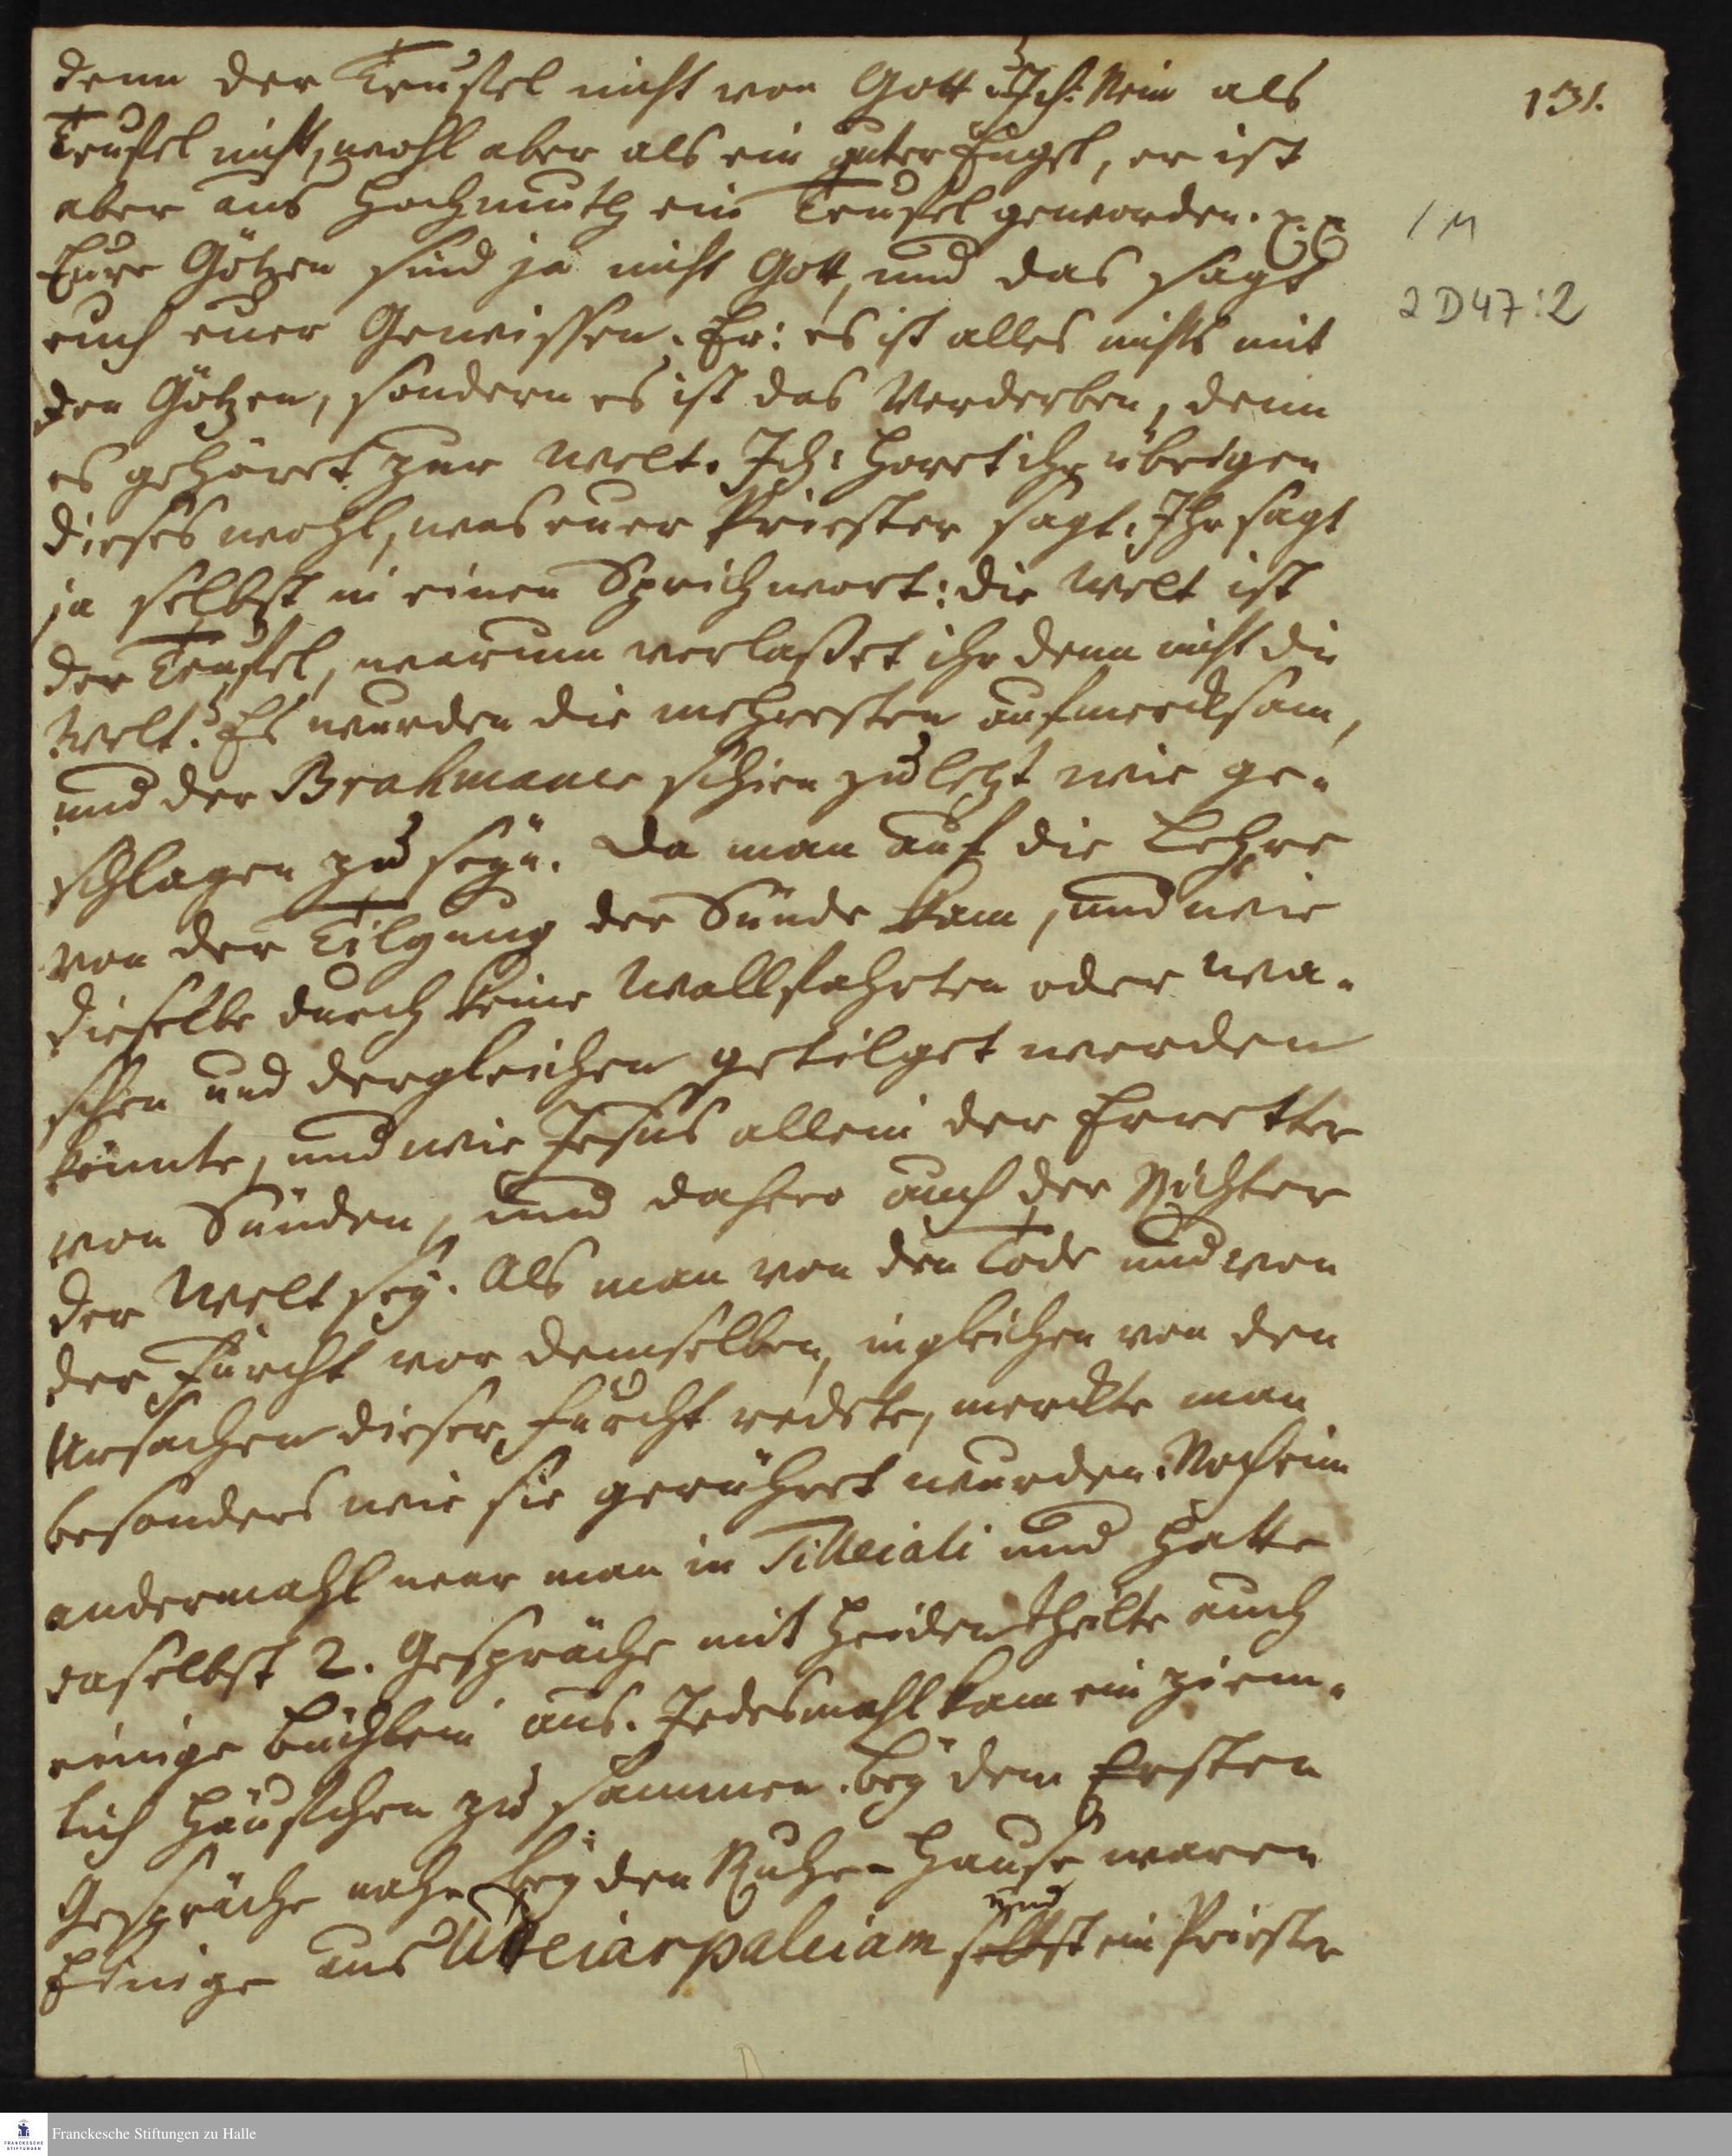 denn der Teufel nicht von Gott? Ich: Nein als
Teufel nicht, wohl aber als ein guter Engel, er ist
aber aus Hochmuth ein Teufel geworden. p. p.
Eure Götzen sind ja nicht Gott, und das sagt
euch euer Gewissen. Er: es ist alles nichts mit
den Götzen, sondern es ist das Verderben, denn
es gehöret zur Welt. Ich: Horet ihr übrigen
dieses wohl, was euer Priester sagt. Ihr sagt
ja selbst in einen Sprichwort: die Welt ist
der Teufel, warum verlaßet ihr denn nicht die
Welt? Es wurden die mehresten aufmercksam,
und der Brahmaner schien zu letzt wie ge-
schlagen zu seyn. Da man auf die Lehre
von der Tilgung der Sünde kam, und wie
dieselbe durch keine Wallfahrten oder wa-
schen und dergleichen getilget werden
könnte, und wie Jesus allein der Erretter
von Sünden, und dahero auch der Richter
der Welt sey. Als man von den Tode und von
der Furcht vor demselben, ingleichen von den
Ursachen dieser Furcht redete, merckte man
besonders wie sie gerühret wurden. Noch ein
andermahl war man in Tilleiali und hatte
daselbst 2. Gespräche mit Heiden theilte auch
einige Büchlein aus. Jedesmahl kam ein ziem-
lich Häufchen zu sammen. Bey dem Ersten
Gespräche nahe bey den Ruhe-Hause waren
Einige aus Utteiarpaleiam und selbst ein Priester
131.
/ M
2 D 47 : 2
FRANCKESCHE
STIFTUNGEN
Franckesche Stiftungen zu Halle